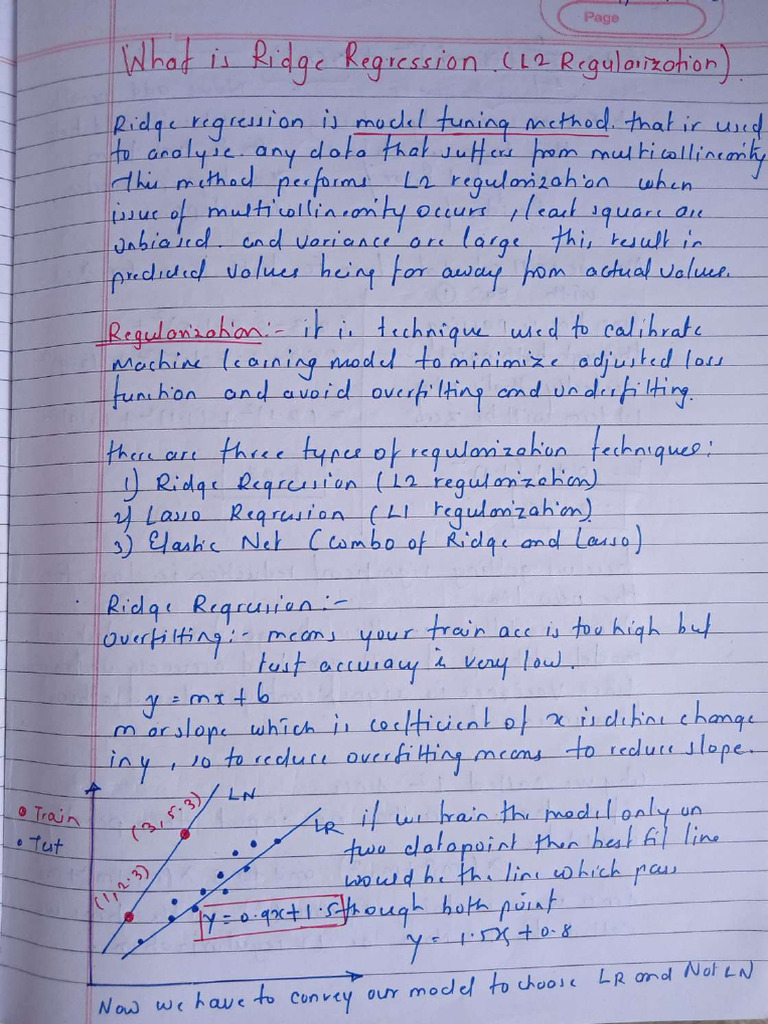 Page
What is Ridge Regression. (L2 Regularization).
Ridge regression is model tuning method. that is used
to analyse any data that suffers from multicollinearity
This method performs L2 regularization when
issue of multicollinearity occurs, least square are
unbiased. and variance are large, this result in
predicted values being far away from actual values.
Regularization:- it is technique used to calibrate
machine learning model to minimize adjusted loss
function and avoid overfitting and underfitting.
there are three types of regularization techniques:
1) Ridge Regression (L2 regularization)
2) Lasso Regression (L1 regularization)
3) Elastic Net (Combo of Ridge and Lasso)
Ridge Regression:-
Overfitting:- means your train acc is too high but
test accuracy is very low.
y = mx + b
m or slope which is coefficient of x is define change
in y, so to reduce overfitting means to reduce slope.
Train
Test
(3, 5.3)
(1, 2.3)
LN
LR
y = 0.9x + 1.5
if we train the model only on
two datapoint then best fit line
would be the line which pass
through both point
y = 1.5x + 0.8
Now we have to convey our model to choose LR and Not LN